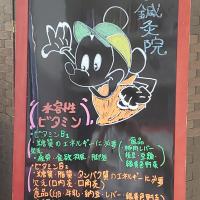 鍼灸院
水溶性
ビタミン
・ビタミンB1
糖質のエネルギーに必要
疲労・食欲不振・脚気
食品
豚肉・レバー
・ビタミンB2
・糖質・脂質・タンパク質のエネルギーに必要
欠乏(口内炎・口角炎)
食品(卵・牛乳・納豆・レバー・緑黄色野菜)